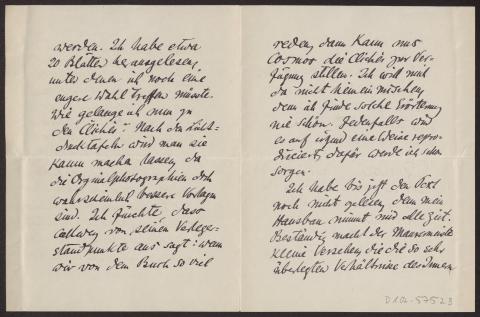 werden. Ich habe etwa
20 Blätter herausgelesen,
unter denen ich noch eine
engere Wahl treffen müsste.
Wie gelange ich nun zu
den Clichés? Nach den Licht-
drucktafeln wird man sie
kaum machen lassen, da
die Originalphotographien doch
wahrscheinlich bessere Vorlagen
sind. Ich fürchte, dass
Callwey von seinem Verleger-
standpunkte aus sagt: wenn
wir von dem Buch so viel
reden, dann kann uns
Cosmos die Clichés zur Ver-
fügung stellen. Ich will mich
da nicht hineinmischen,
denn ich finde solche
nie schön. Jedenfalls wird
es auf irgend eine Weise repro-
duciert, dafür werde ich schon
sorgen.
Ich habe bis jetzt den Text
noch nicht gelesen, denn mein
Hausbau nimmt mir alle Zeit.
Beständig macht der Maurermeister
kleine Versehen, die die so sehr
überlegten Verhältnisse des Innern
D 104-575 23